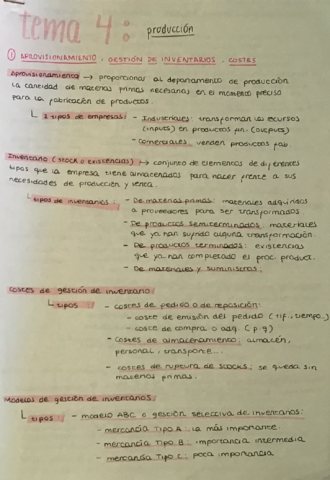 tema 4: producción
① APROVISIONAMIENTO, GESTIÓN DE INVENTARIOS, COSTES
Aprovisionamiento → proporcionar al departamento de producción
la cantidad de materias primas necesarias en el momento preciso
para la fabricación de productos.
2 tipos de empresas: - Industriales: transforman los recursos
(inputs) en productos fin. (outputs)
- comerciales: venden productos fab.
Inventario (stock o existencias) → conjunto de elementos de diferentes
tipos que la empresa tiene almacenados para hacer frente a sus
necesidades de producción y venta.
tipos de inventarios: - De materias primas: materiales adquiridos
a proveedores para ser transformados
- De productos semiterminados: materiales
que ya han sufrido alguna transformación.
- De productos terminados: existencias
que ya han completado el proc. product.
- De materiales y suministros.
Costes de gestión de inventario:
tipos: - costes de pedido o de reposición:
- coste de emisión del pedido (tlf., tiempo..)
- coste de compra o adq. (p·q)
- costes de almacenamiento: almacén,
personal, transporte...
- costes de ruptura de stocks: se queda sin
materias primas.
Modelos de gestión de inventarios:
tipos: - modelo ABC o gestión selectiva de inventarios:
- mercancía Tipo A: la más importante
- mercancía Tipo B: importancia intermedia
- mercancía Tipo C: poca importancia